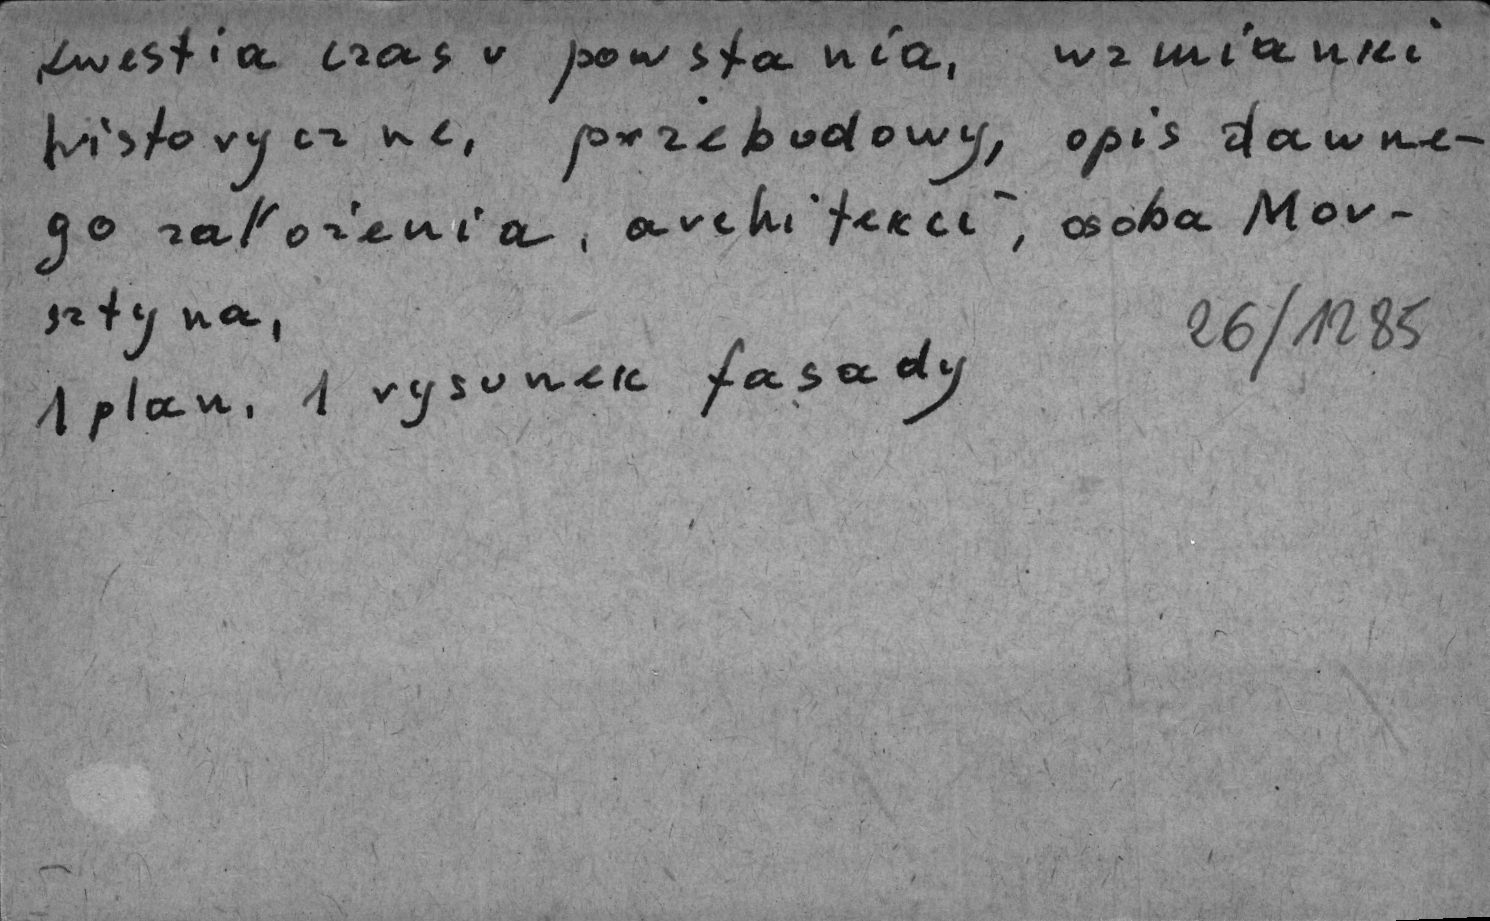 kwestia czasu powstania, wzmianki
historyczne, przebudowy, opis dawne-
go założenia, architekci, osoba Mor-
sztyna,
26/1285
1 plan, 1 rysunek fasady